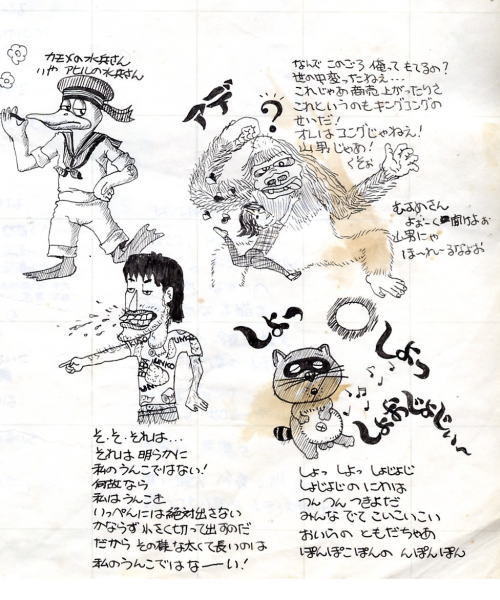 カモメの水兵さん
いや アヒルの水兵さん
なんで このごろ 俺って もてるの?
世の中変ったねえ…
これじゃあ商売上がったりさ
これというのもキングコングの
せいだ!
オレはコングじゃねえ!
山男じゃあ!
くそぉ
アデ
?
むすめさん
よぉーく聞けよぉ
山男にゃ
ほ〜れ〜るなよお
UNKO
UNKO
しょっ
しょっ
しょじょじぃ〜
そ・そ・それは…
それは 明らかに
私のうんこではない!
何故なら
私はうんこを
いっぺんには絶対出さない
かならず 小さく切って出すのだ
だから その様な太くて長いのは
私のうんこではなーい!
しょっ しょっ しょじょじ
しょじょじの にわは
つん つん つきよだ
みんな でて こいこいこい
おいらの ともだちゃあ
ぽんぽこぽんの んぽんぽん